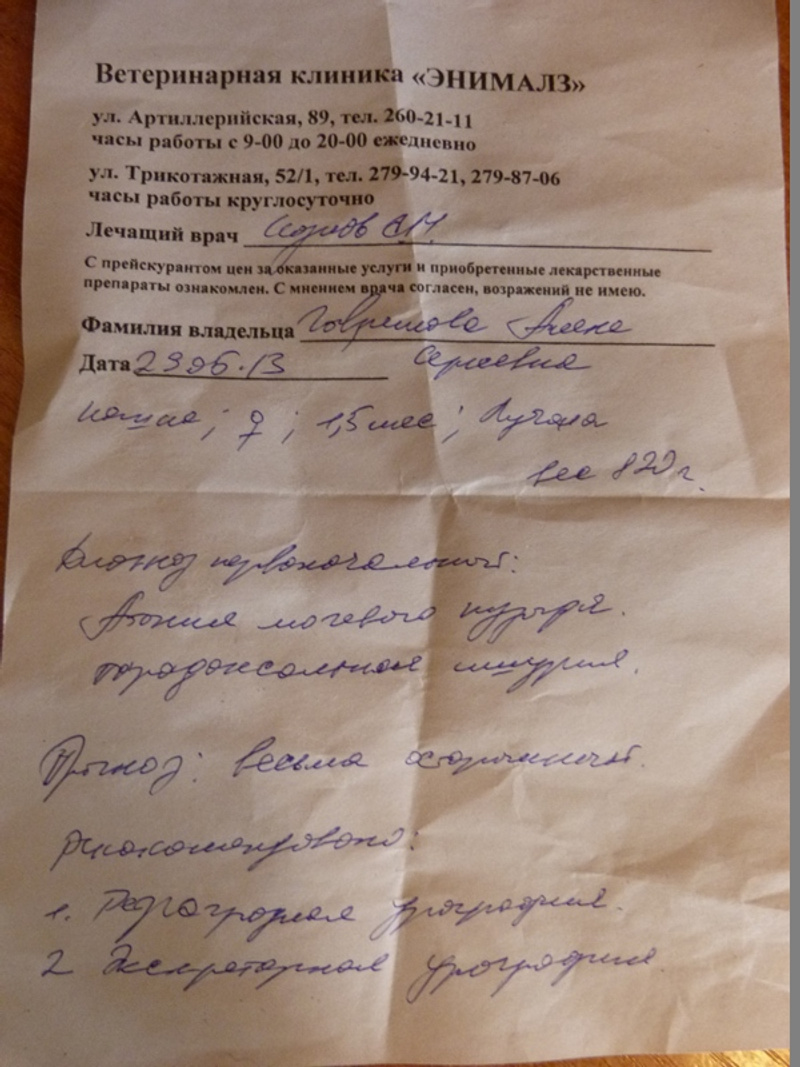 Ветеринарная клиника «ЭНИМАЛЗ»
ул. Артиллерийская, 89, тел. 260-21-11
часы работы с 9-00 до 20-00 ежедневно
ул. Трикотажная, 52/1, тел. 279-94-21, 279-87-06
часы работы круглосуточно
Лечащий врач
С прейскурантом цен за оказанные услуги и приобретенные лекарственные
препараты ознакомлен. С мнением врача согласен, возражений не имею.
Фамилия владельца
Дата 29.06.13 Сергеевна
кошка; ♀; 1,5 мес;
вес 820 г.
Диагноз первоначальный:
Атония мочевого пузыря.
парадоксальная ишурия.
Прогноз: весьма осторожный.
Рекомендовано:
1. Ретроградная урография.
2 Экскреторная урография.